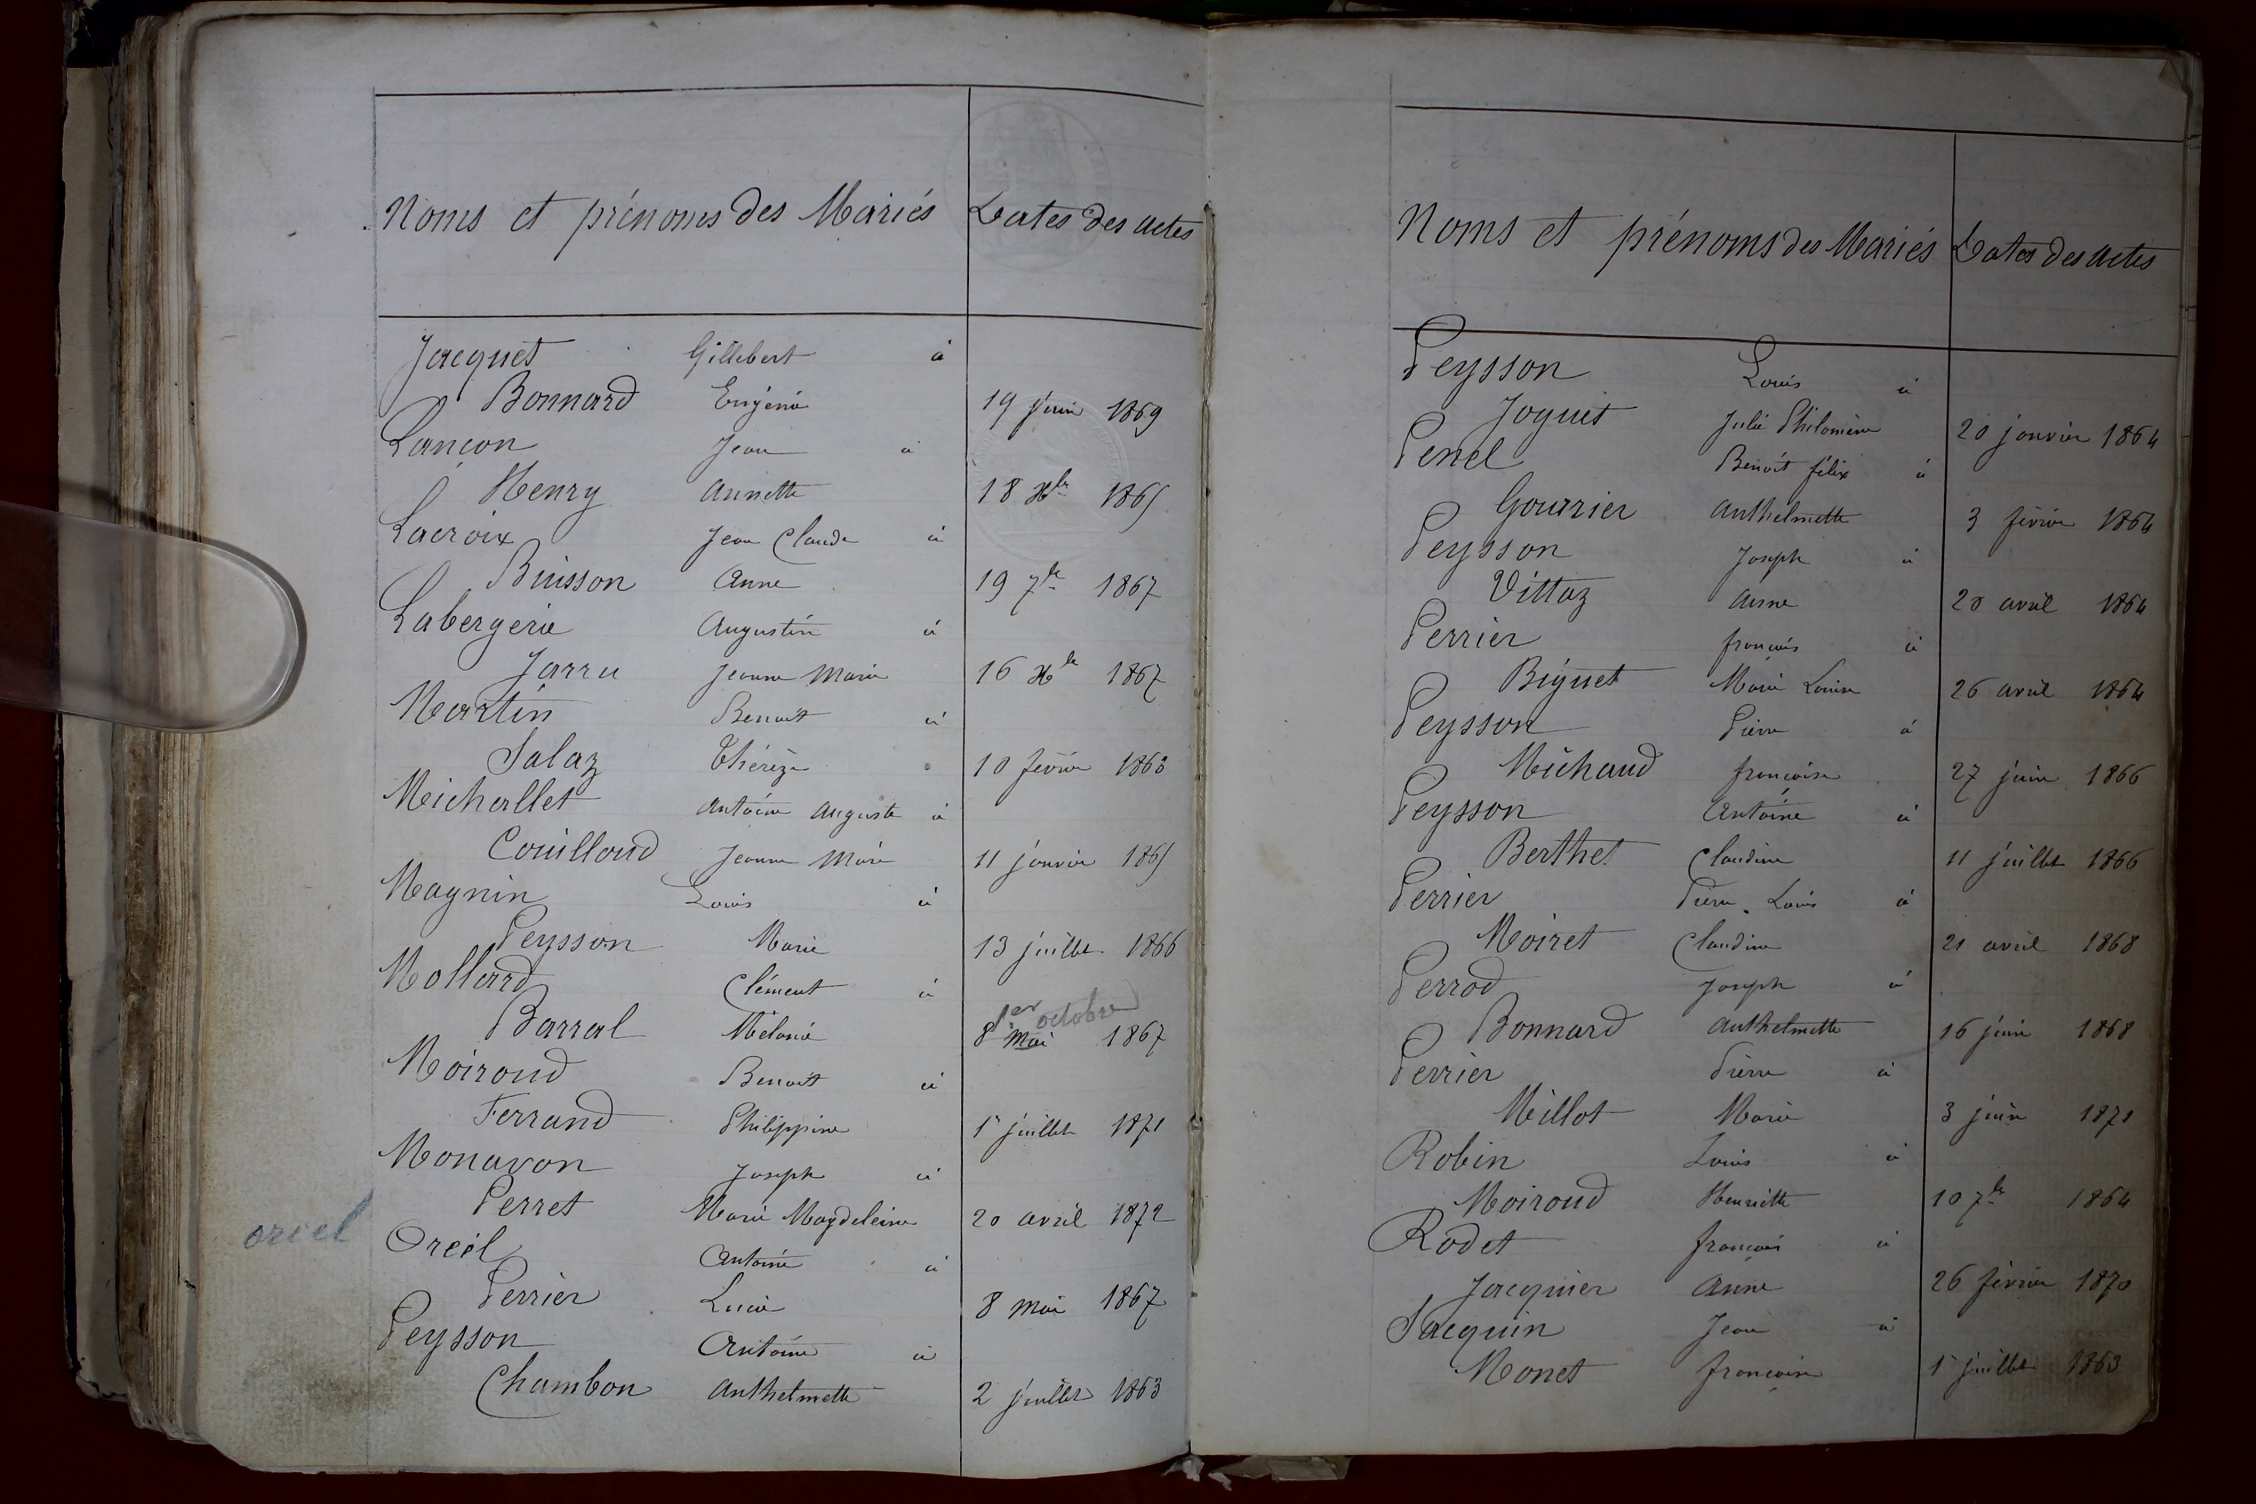 Noms et prénoms des Mariés Dates des actes
Jacquet Gillebert à
Bonnard Eugénie 19 juin 1869
Lançon Jean à
Henry Annette 18 Xbre 1865
Lacroix Jean Claude à
Buisson Anne 19 7bre 1867
Labergerie Augustin à
Jarru Jeanne Marie 16 Xbre 1867
Martin Benoit à
Salaz Thérèze 10 février 1863
Michallet Antoine Auguste à
Couilloud Jeanne Marie 11 janvier 1865
Magnin Louis à
Peysson Marie 13 juillet 1866
Mollard Clément à
1er octobre
Barral Mélanie 8 Mai 1867
Moiroud Benoit à
Ferrand Philippine 1er juillet 1871
Monavon Joseph à
Perret Marie Magdeleine 20 avril 1872
oriel Oreil Antoine à
Perrier Lucie 8 Mai 1867
Peysson Antoine à
Chambon Anthelmette 2 juillet 1863
Noms et prénoms des Mariés Dates des actes
Peysson Louis à
Joguet Julie Philomène 20 janvier 1864
Penel Benoit félix à
Gourrier Anthelmette 3 février 1864
Peysson Joseph à
Vittaz Anne 20 avril 1864
Perrier françois à
Biguet Marie Louise 26 avril 1864
Peysson Pierre à
Michaud françoise 27 juin 1866
Peysson Antoine à
Berthet Claudine 11 juillet 1866
Perrier Pierre Louis à
Moiret Claudine 21 avril 1868
Perrod Joseph à
Bonnard Anthelmette 16 juin 1868
Perrier Pierre à
Millot Marie 3 juin 1871
Robin Louis à
Moiroud Henriette 10 7bre 1864
Rodet françois à
Jacquier Anne 26 février 1870
Jacquin Jean à
Monet françoise 1er juillet 1863